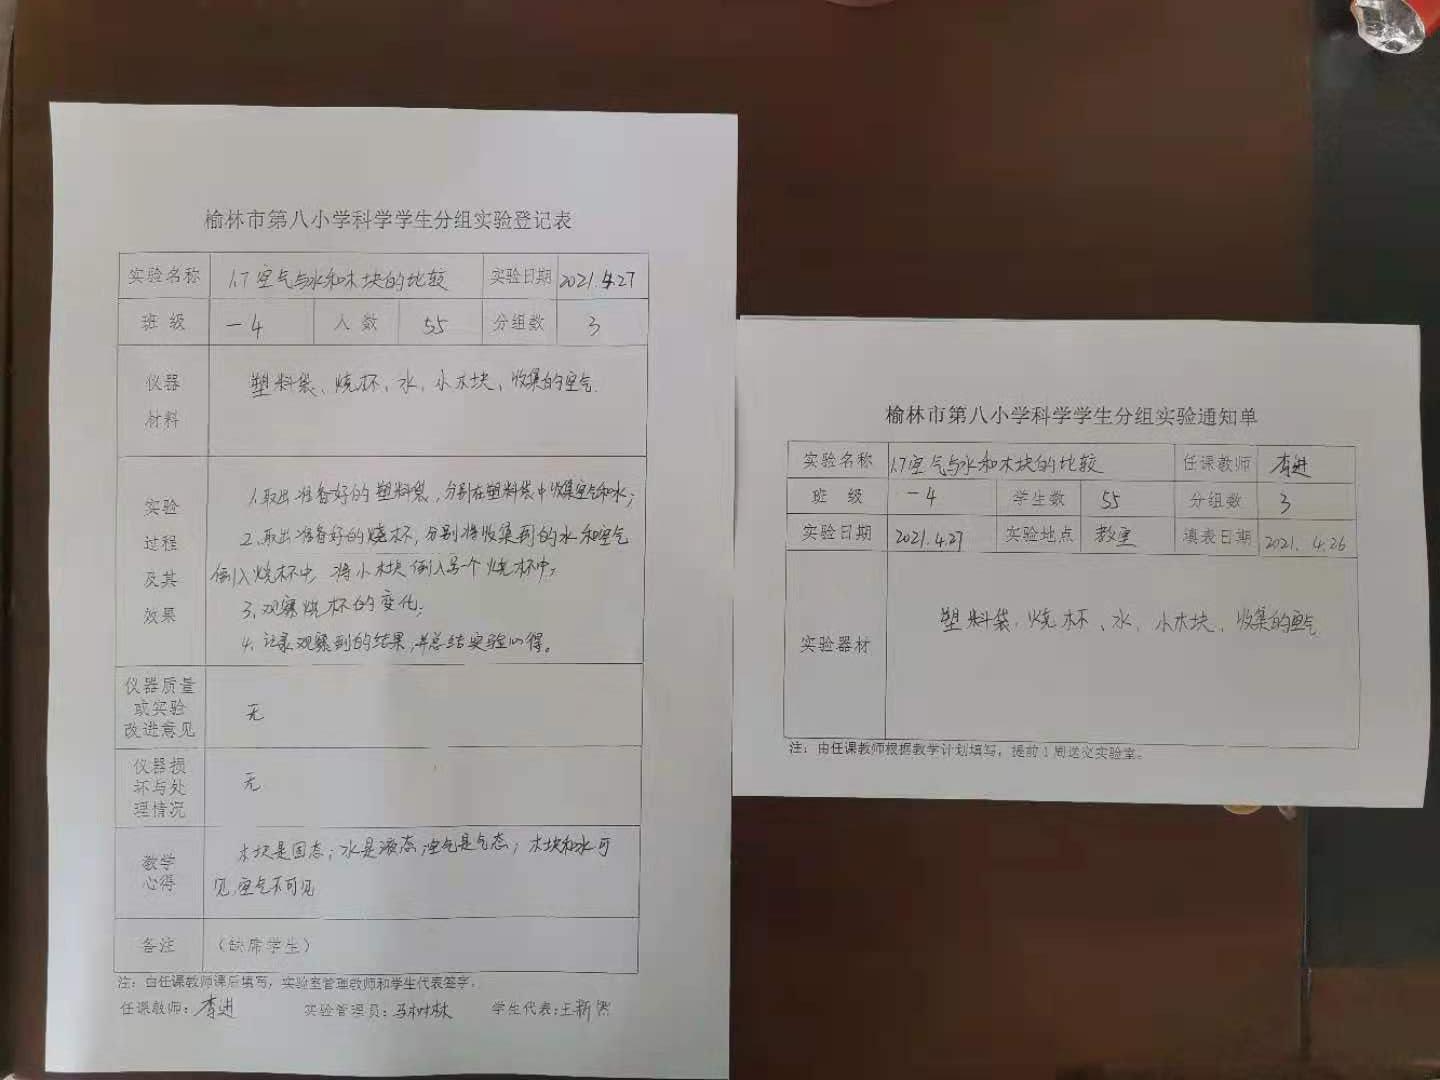 榆林市第八小学科学学生分组实验登记表
实验名称 1.7空气与水和木块的比较 实验日期 2021.4.27
班 级 一4 人 数 55 分组数 3
仪器
材料
塑料袋、烧杯、水、小木块、收集的空气.
实验
过程
及其
效果
1.取出准备好的塑料袋,分别在塑料袋中收集空气和水;
2.取出准备好的烧杯,分别将收集到的水和空气
倒入烧杯中,将小木块倒入另一个烧杯中;
3.观察烧杯的变化;
4.记录观察到的结果,并总结实验心得。
仪器质量
或实验
改进意见
无
仪器损
坏与处
理情况
无
教学
心得
木块是固态;水是液态;空气是气态;木块和水可
见,空气不可见
备注 (缺席学生)
注:由任课教师课后填写,实验室管理教师和学生代表签字。
任课教师:李进 实验管理员:马树林 学生代表:王新
榆林市第八小学科学学生分组实验通知单
实验名称 1.7空气与水和木块的比较 任课教师 李进
班 级 一4 学生数 55 分组数 3
实验日期 2021.4.27 实验地点 教室 填表日期 2021.4.26
实验器材 塑料袋、烧杯、水、小木块、收集的空气
注:由任课教师根据教学计划填写,提前1周送交实验室。